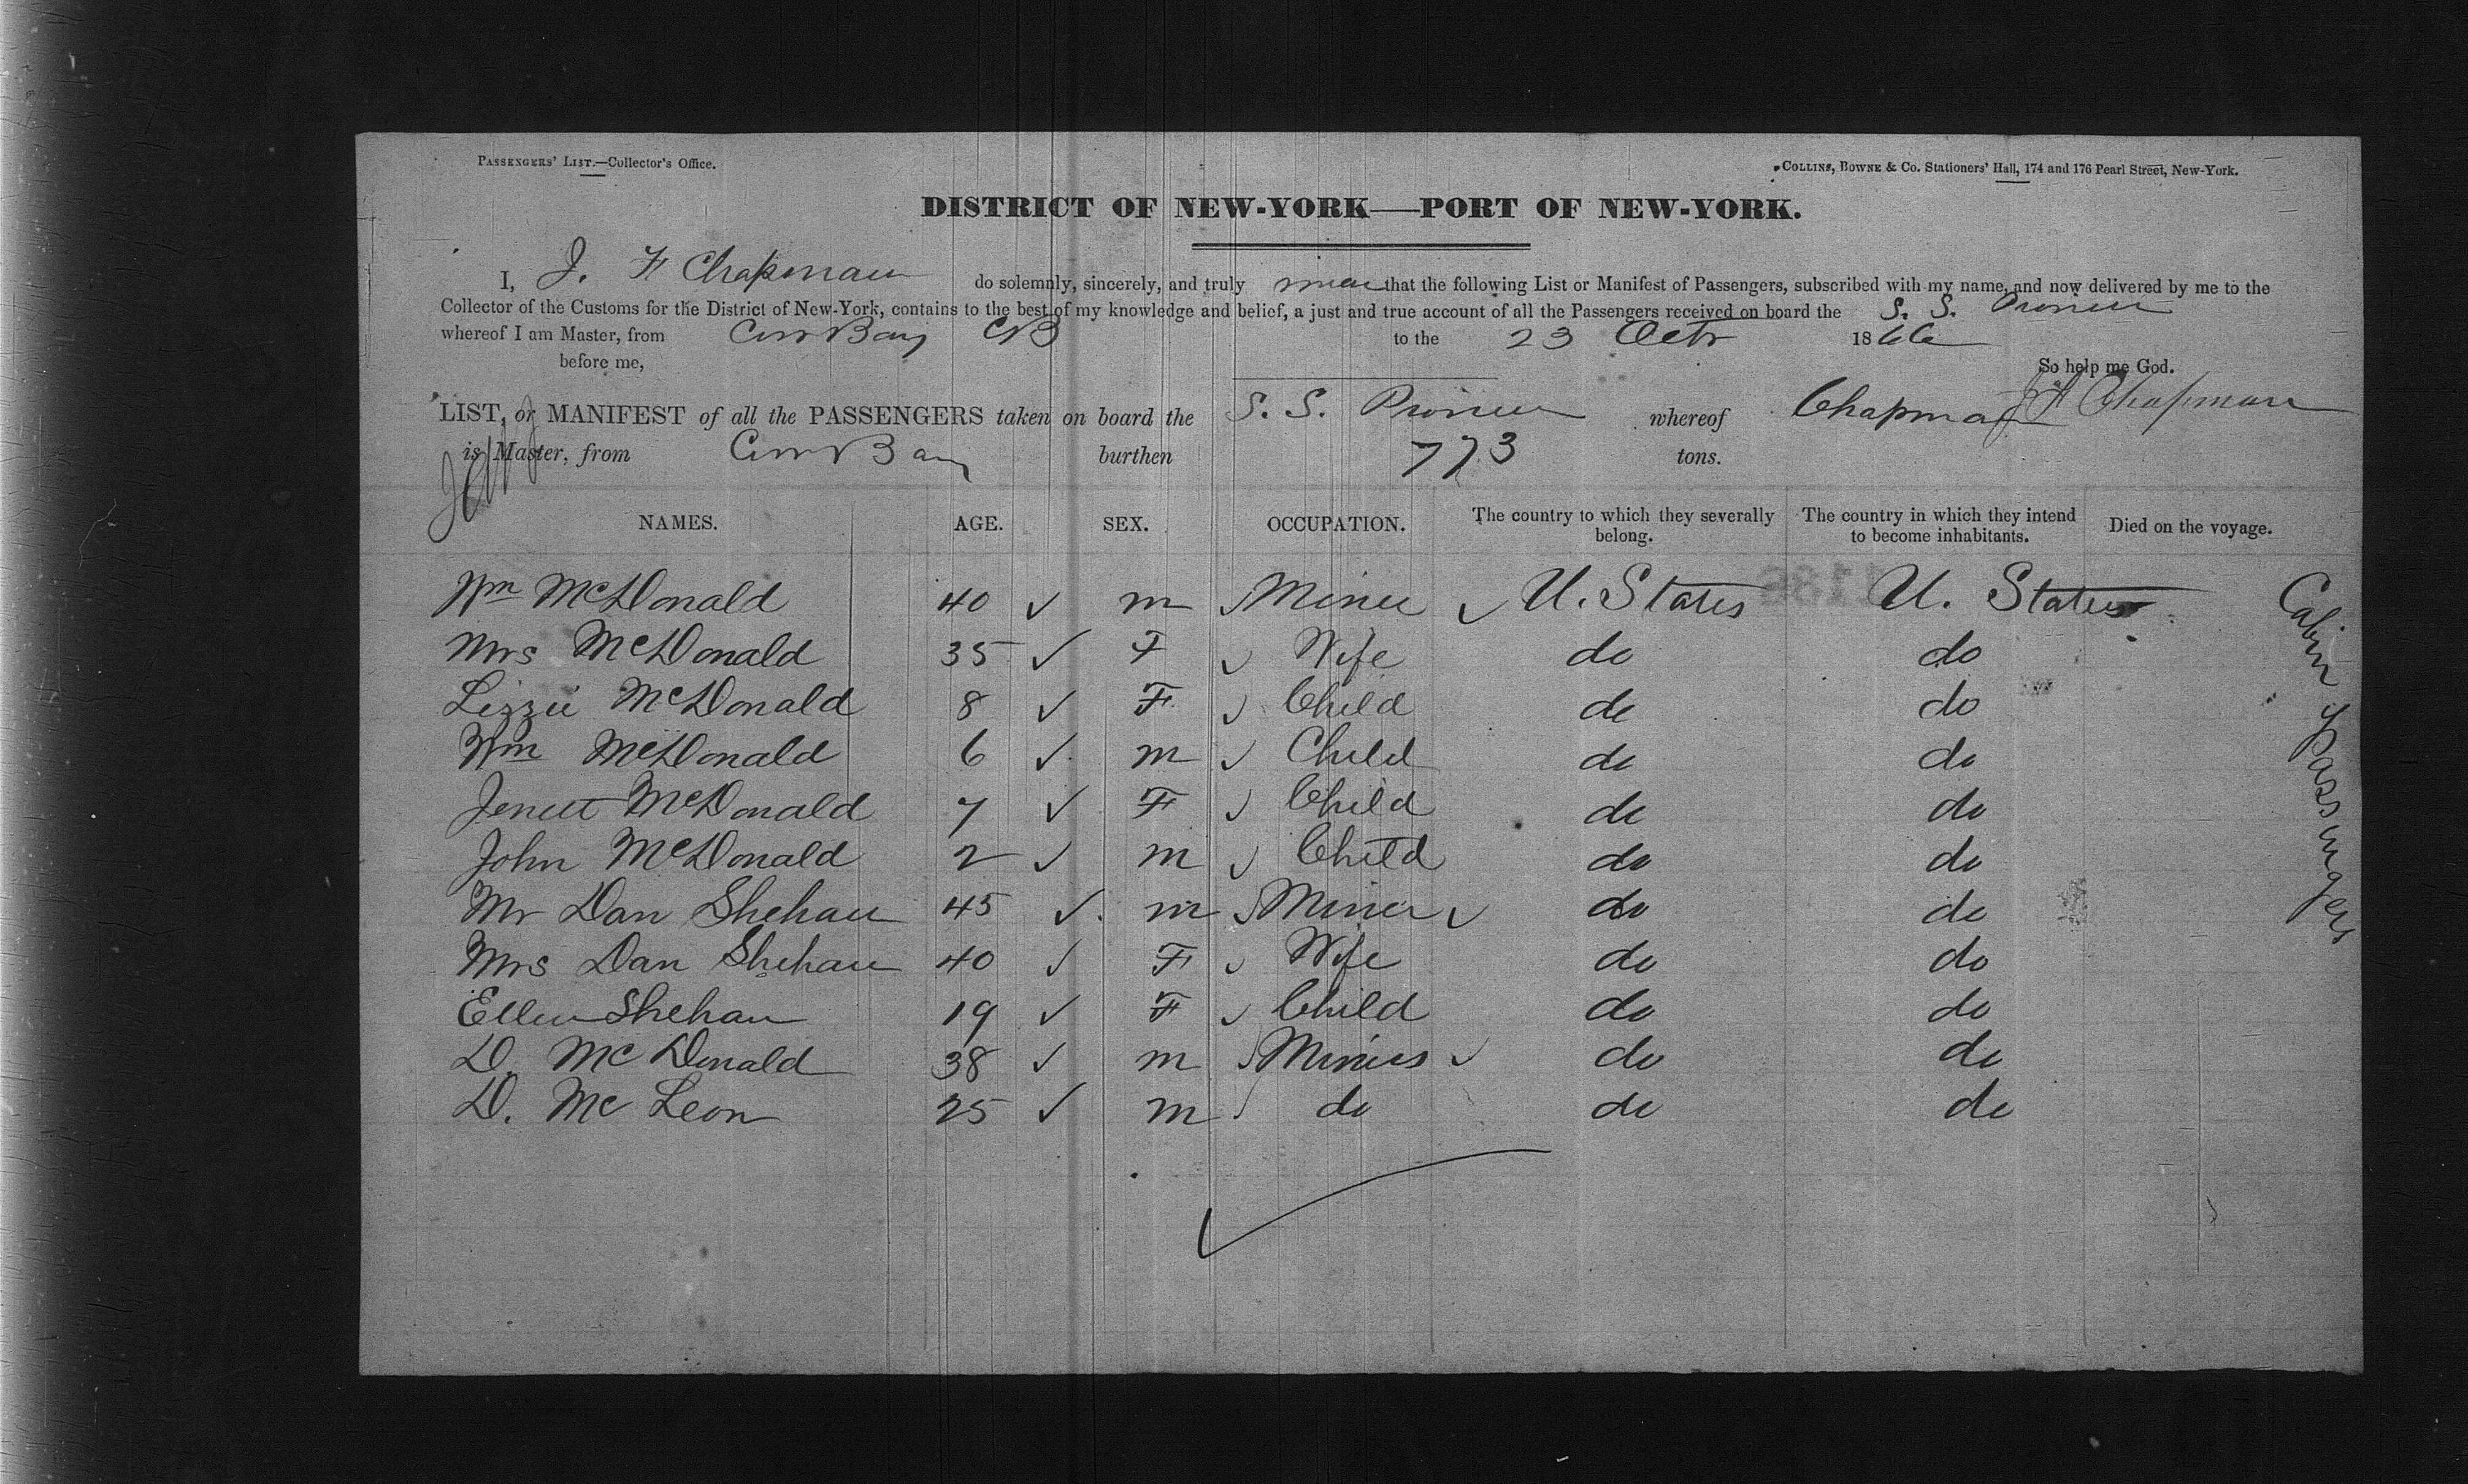 PASSENGERS' LIST.—Collector's Office.
COLLINS, BOWNE & Co. Stationers' Hall, 174 and 176 Pearl Street, New-York.
DISTRICT OF NEW-YORK—PORT OF NEW-YORK.
I, J. F Chapman do solemnly, sincerely, and truly that the following List or Manifest of Passengers, subscribed with my name, and now delivered by me to the
Collector of the Customs for the District of New-York, contains to the best of my knowledge and belief, a just and true account of all the Passengers received on board the S. S. Pioneer
whereof I am Master, from Cow Bay CB to the 23 Octr 1866
before me, So help me God.
J F Chapman
LIST, or MANIFEST of all the PASSENGERS taken on board the S. S. Pioneer whereof Chapman
is Master, from Cow Bay burthen 773 tons.
NAMES. AGE. SEX. OCCUPATION. The country to which they severally belong. The country in which they intend to become inhabitants. Died on the voyage.
Wm McDonald 40 m Miner U. States U. States
Mrs McDonald 35 F Wife do do
Lizzie McDonald 8 F Child do do
Wm McDonald 6 m Child do do
Jenett McDonald 7 F Child do do
John McDonald 2 m Child do do
Mr Dan Shehan 45 m Miner do do
Mrs Dan Shehan 40 F Wife do do
Ellen Shehan 19 F Child do do
D. McDonald 38 m Miners do do
D. Mc Leon 25 m do do do
Cabin Passengers